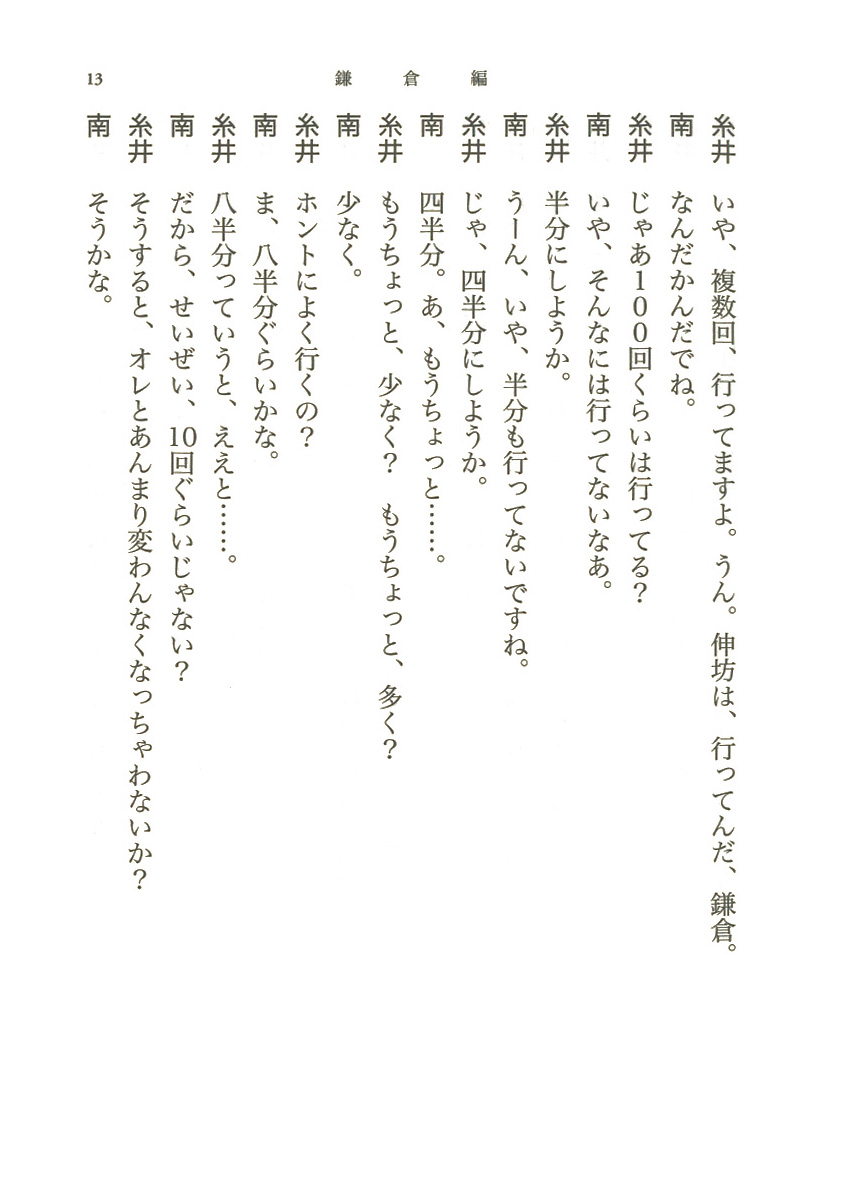 13
鎌倉編
糸井　いや、複数回、行ってますよ。うん。伸坊は、行ってんだ、鎌倉。
南　なんだかんだでね。
糸井　じゃあ100回くらいは行ってる？
南　いや、そんなには行ってないなあ。
糸井　半分にしようか。
南　うーん、いや、半分も行ってないですね。
糸井　じゃ、四半分にしようか。
南　四半分。あ、もうちょっと……。
糸井　もうちょっと、少なく？　もうちょっと、多く？
南　少なく。
糸井　ホントによく行くの？
南　ま、八半分ぐらいかな。
糸井　八半分っていうと、ええと……。
南　だから、せいぜい、10回ぐらいじゃない？
糸井　そうすると、オレとあんまり変わんなくなっちゃわないか？
南　そうかな。